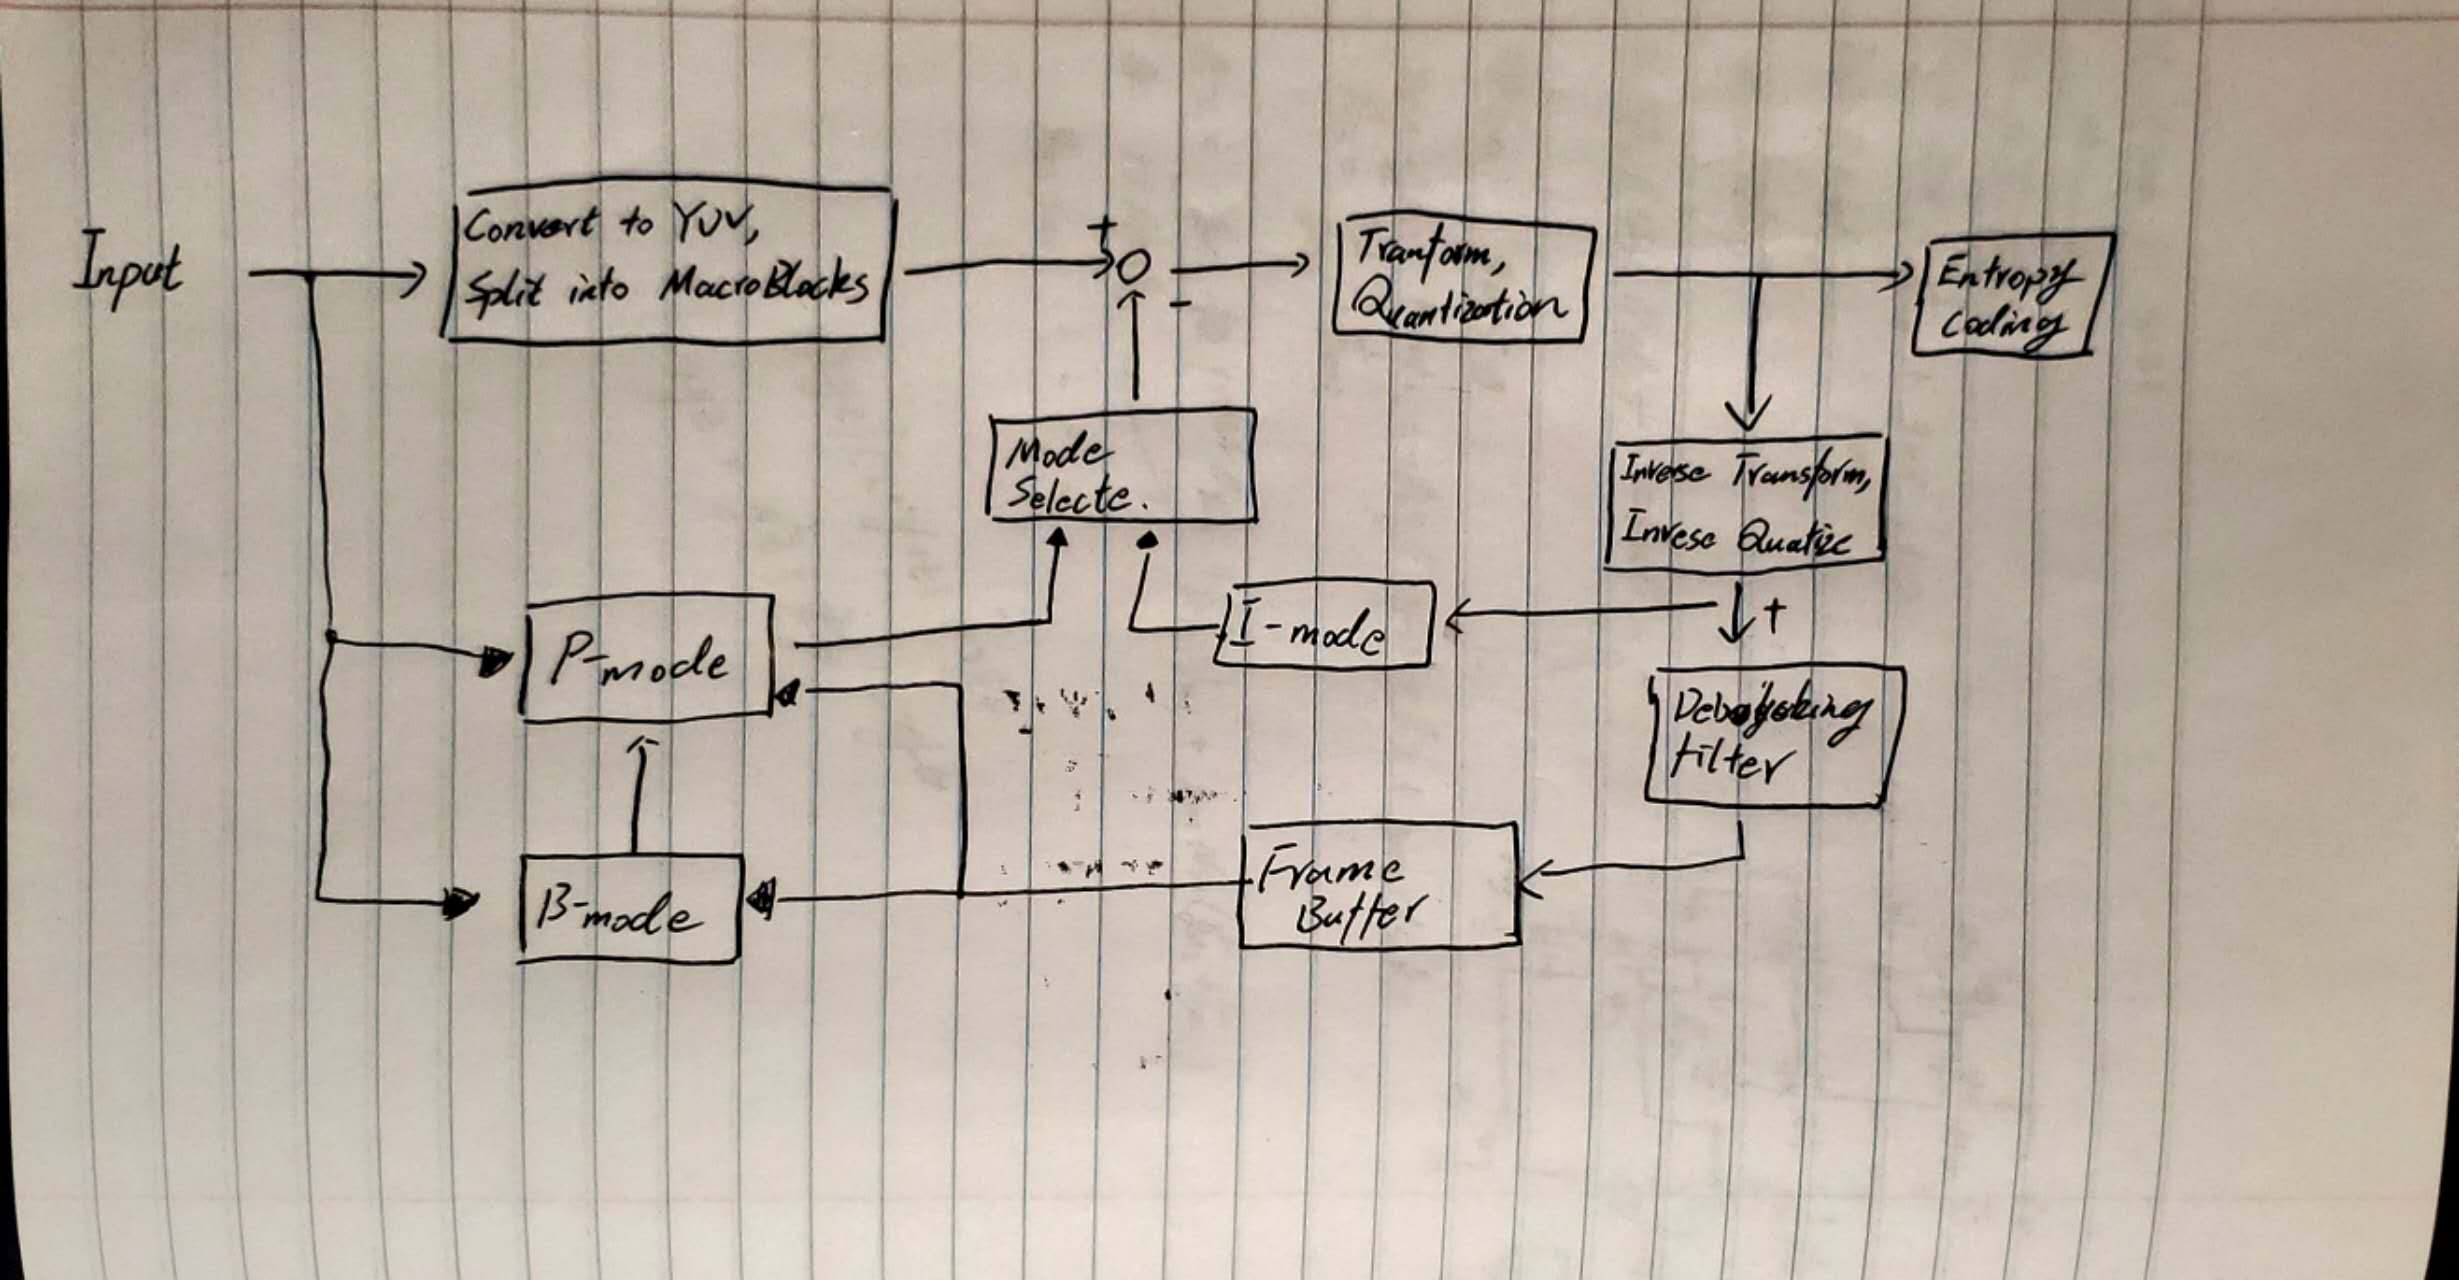 Input
Convert to YUV,
Split into MacroBlocks
+
-
Tranform,
Quantization
Entropy
Coding
Mode
Selecte.
Inverse Transform,
Invese Quatize
+
P-mode
I-mode
Filter
B-mode
Frame
Buffer